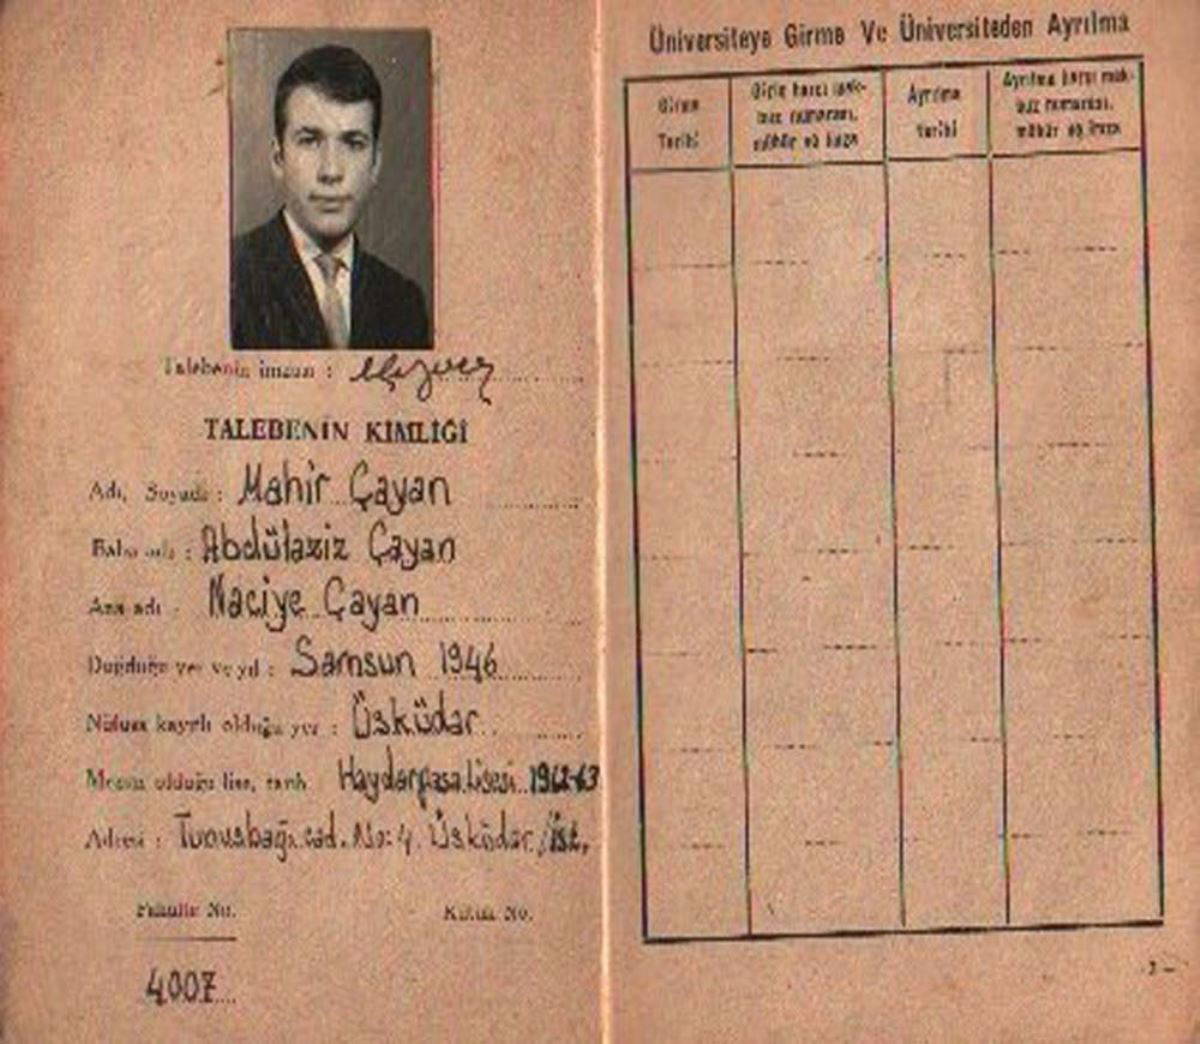 Talebenin imzası :
TALEBENİN KİMLİĞİ
Adı, Soyadı : Mahir Çayan
Baba adı : Abdülaziz Çayan
Ana adı : Naciye Çayan
Doğduğu yer ve yıl : Samsun 1946
Nüfusa kayıtlı olduğu yer : Üsküdar
Mezun olduğu lise, tarih Haydarpaşa Lisesi 1962-63
Adresi : Tunusbağı cad. No: 4. Üsküdar / İst.
Fakülte No. Kütük No.
4007
Üniversiteye Girme Ve Üniversiteden Ayrılma
Girme Tarihi
Giriş harcı mak-
buz numarası,
mühür ve imza
Ayrılma
tarihi
Ayrılma harcı mak-
buz numarası,
mühür ve imza